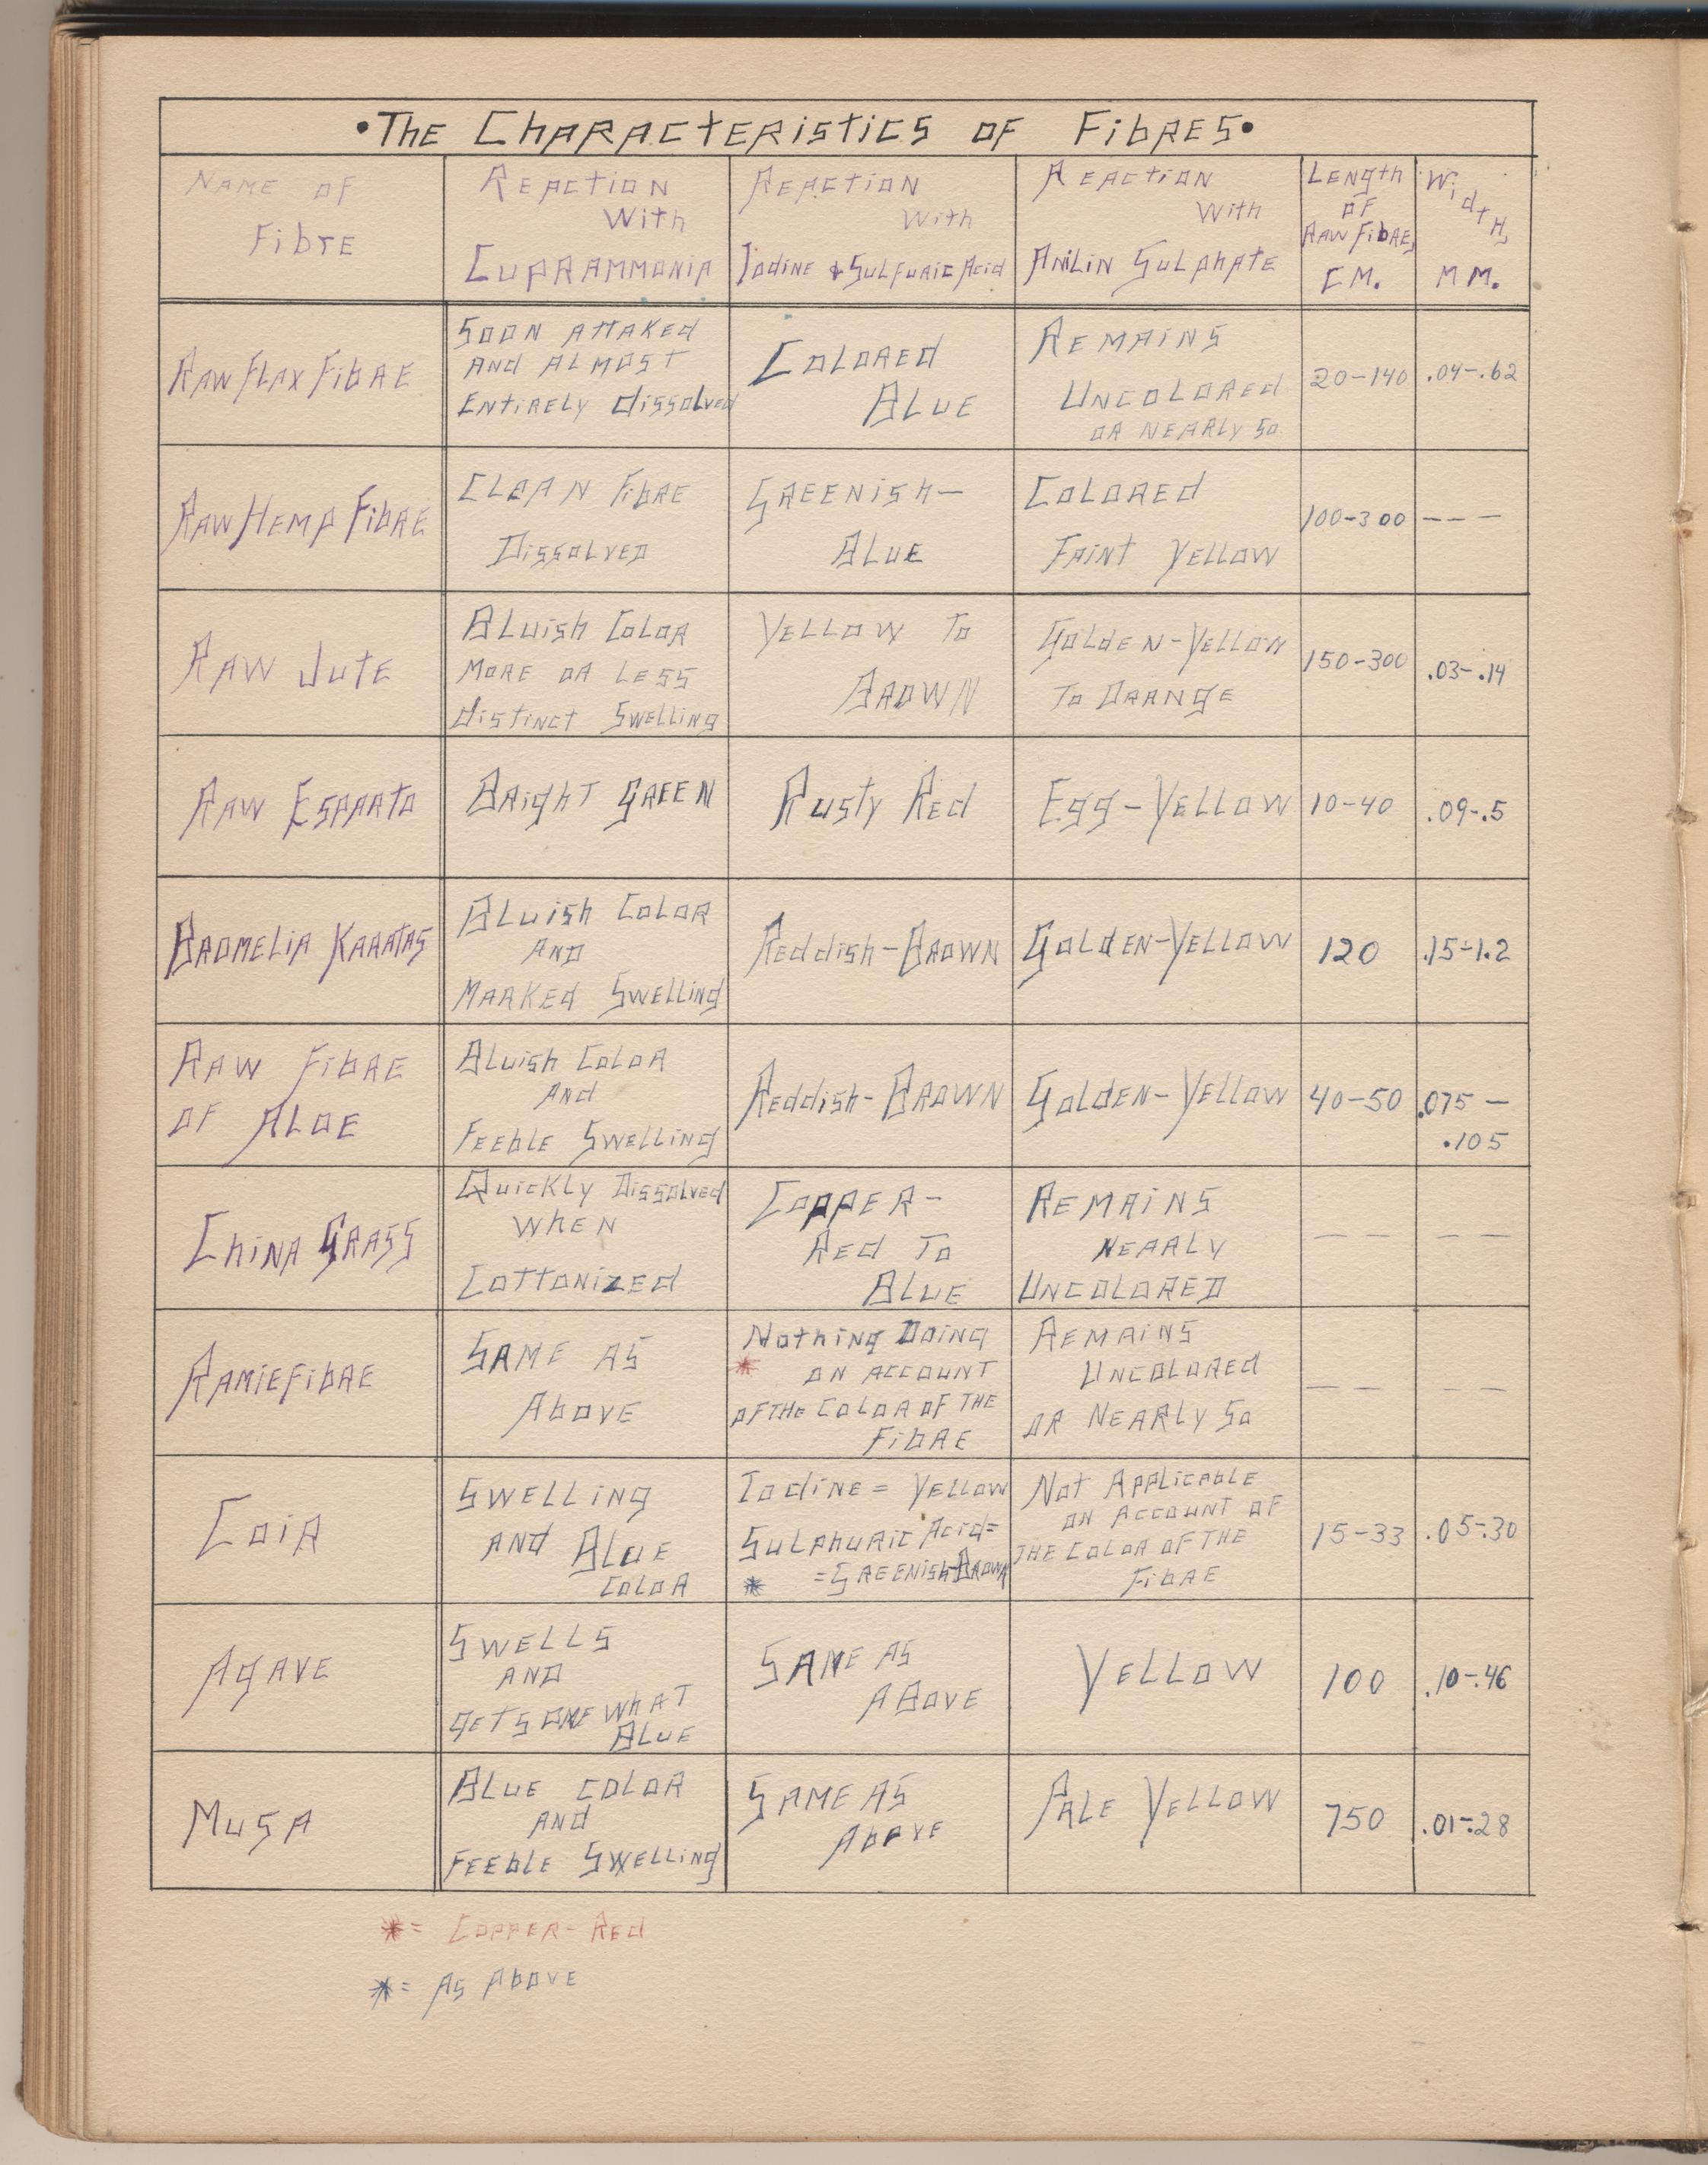 •The Characteristics of Fibres•
Name of
Fibre
Reaction
With
Cuprammonia
Reaction
With
Iodine & Sulfuric Acid
Reaction
With
Anilin Sulphate
Length
of
Raw Fibre,
CM.
Width,
MM.
Raw Flax Fibre
Soon attaked
and almost
Entirely dissolved
Colored
Blue
Remains
Uncolored
or nearly so
20-140
.04-.62
Raw Hemp Fibre
Clean Fibre
Dissolved
Greenish-
Blue
Colored
Faint Yellow
100-300
---
Raw Jute
Bluish Color
More or less
distinct Swelling
Yellow To
Brown
Golden-Yellow
To Orange
150-300
.03-.14
Raw Esparto
Bright Green
Rusty Red
Egg-Yellow
10-40
.09-.5
Bromelia Karatas
Bluish Color
And
Marked Swelling
Reddish-Brown
Golden-Yellow
120
.15-1.2
Raw Fibre
of Aloe
Bluish Color
And
Feeble Swelling
Reddish-Brown
Golden-Yellow
40-50
.075-
.105
China Grass
Quickly Dissolved
When
Cottonized
Copper-
Red To
Blue
Remains
Nearly
Uncolored
--
--
Ramie Fibre
Same as
Above
Nothing Doing
* on account
of the Color of the
Fibre
Remains
Uncolored
or Nearly So
--
--
Coir
Swelling
and Blue
Color
Iodine = Yellow
Sulphuric Acid=
* =Greenish-Brown
Not Applicable
on Account of
the Color of the
Fibre
15-33
.05-.30
Agave
Swells
and
gets somewhat
Blue
Same as
Above
Yellow
100
.10-.46
Musa
Blue color
and
Feeble Swelling
Same as
Above
Pale Yellow
750
.01-.28
*= Copper-Red
*= As Above